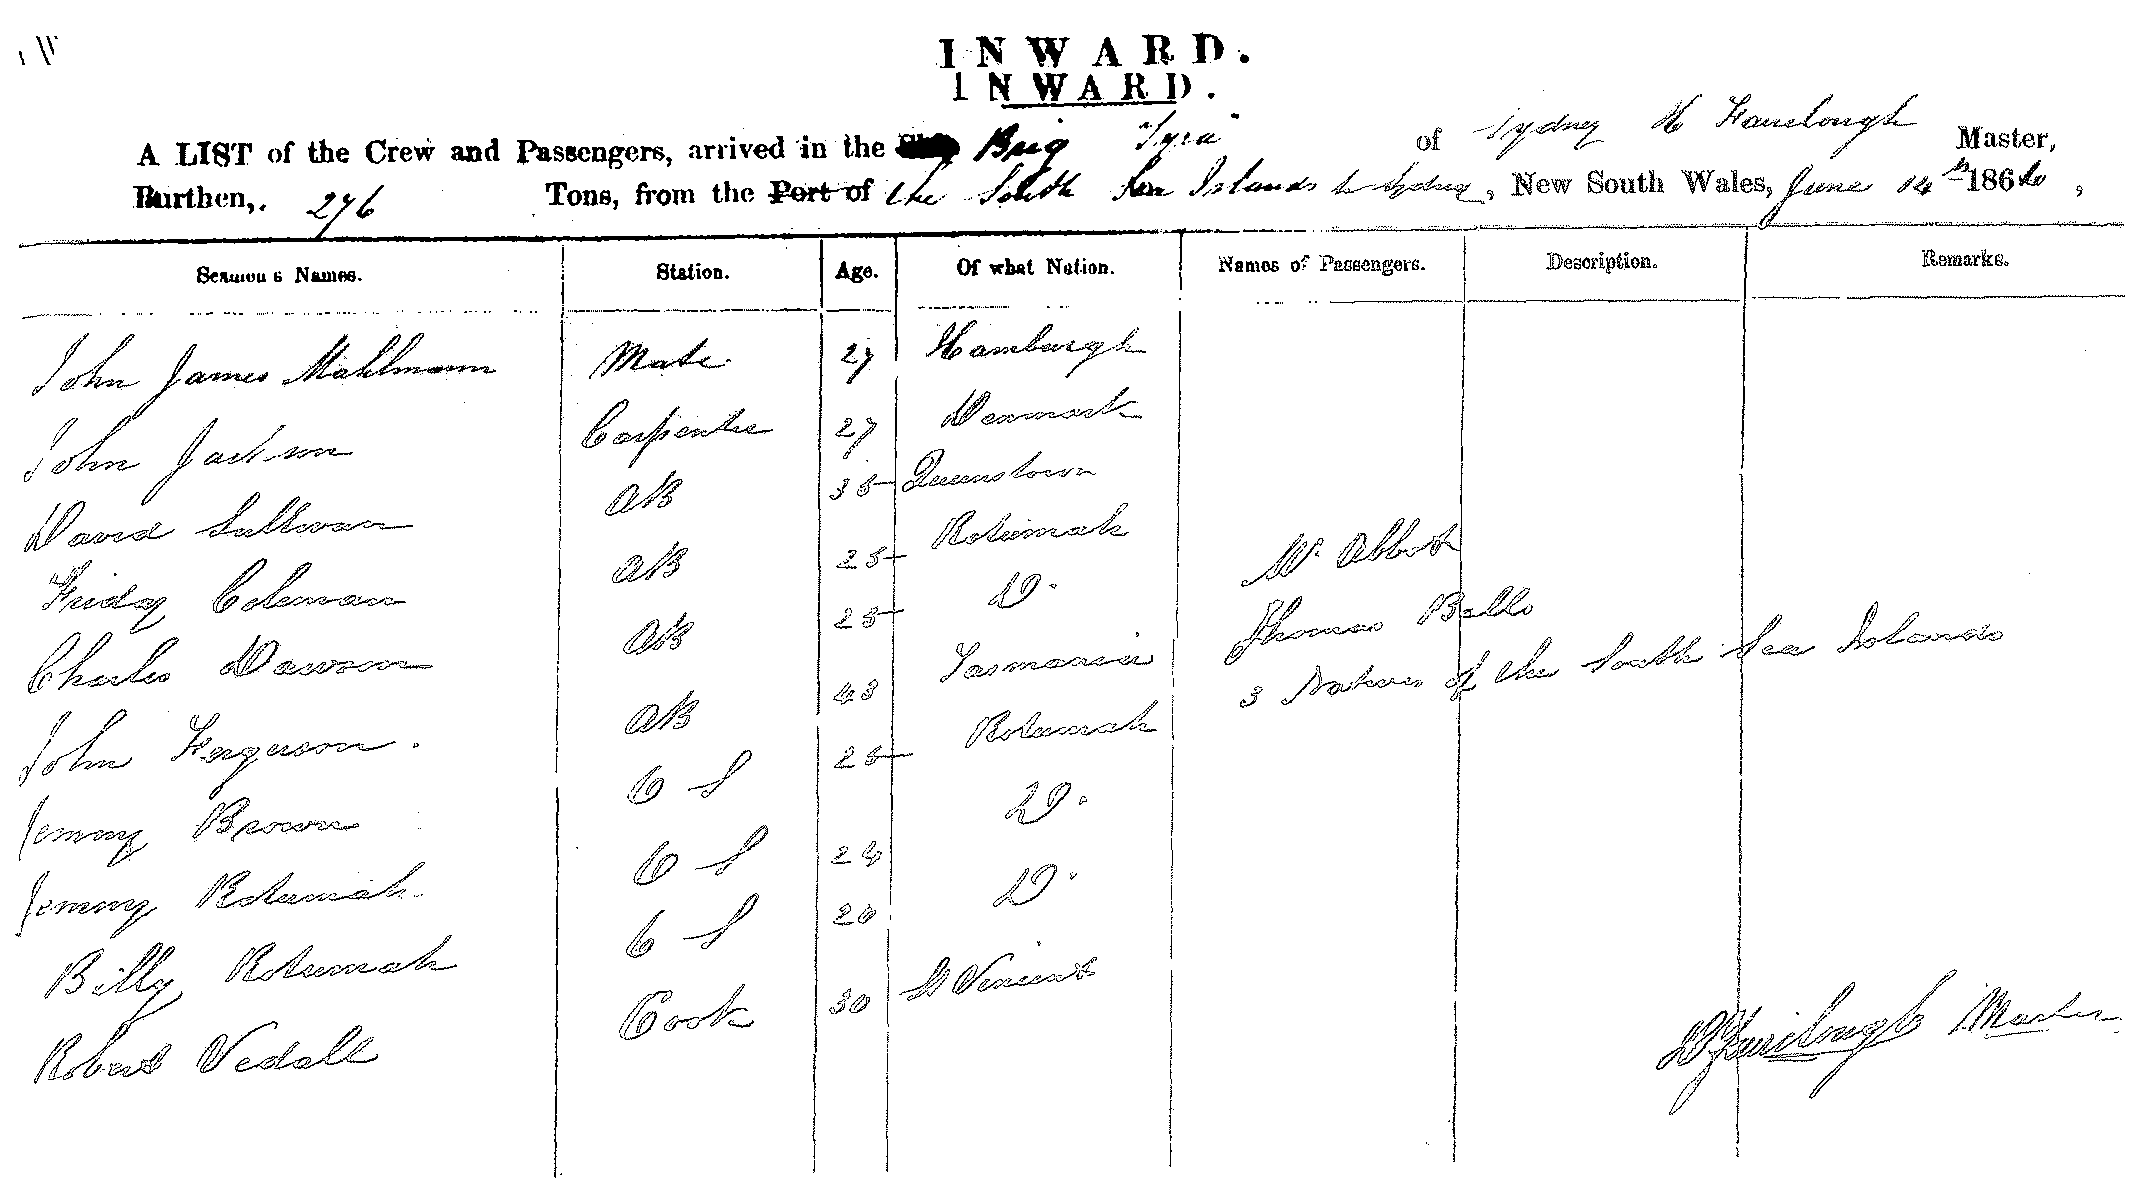 INWARD.
INWARD.
A LIST of the Crew and Passengers, arrived in the Ship Brig "Lyra" of Sydney Fairclough Master,
Burthen, 276 Tons, from the Port of the South Sea Islands to Sydney, New South Wales, June 14th 1864,
Seamen's Names. Station. Age. Of what Nation. Names of Passengers. Description. Remarks.
John James Mahlmann Mate 27 Hamburgh
John Jackson Carpenter 27 Denmark
David Sullivan AB 35 Queenstown
Friday Coleman AB 25 Rotumah Mr. Abbott
Charles Dawson AB 25 Do. Thomas Bells
John Ferguson. AB 43 Tasmania 3 Natives of the South Sea Islands
Jemmy Brown OS 25 Rotumah
Jemmy Rotumah. OS 24 Do.
Billy Rotumah OS 20 Do.
Robert Vedall Cook 30 St Vincent
Fairclough Master